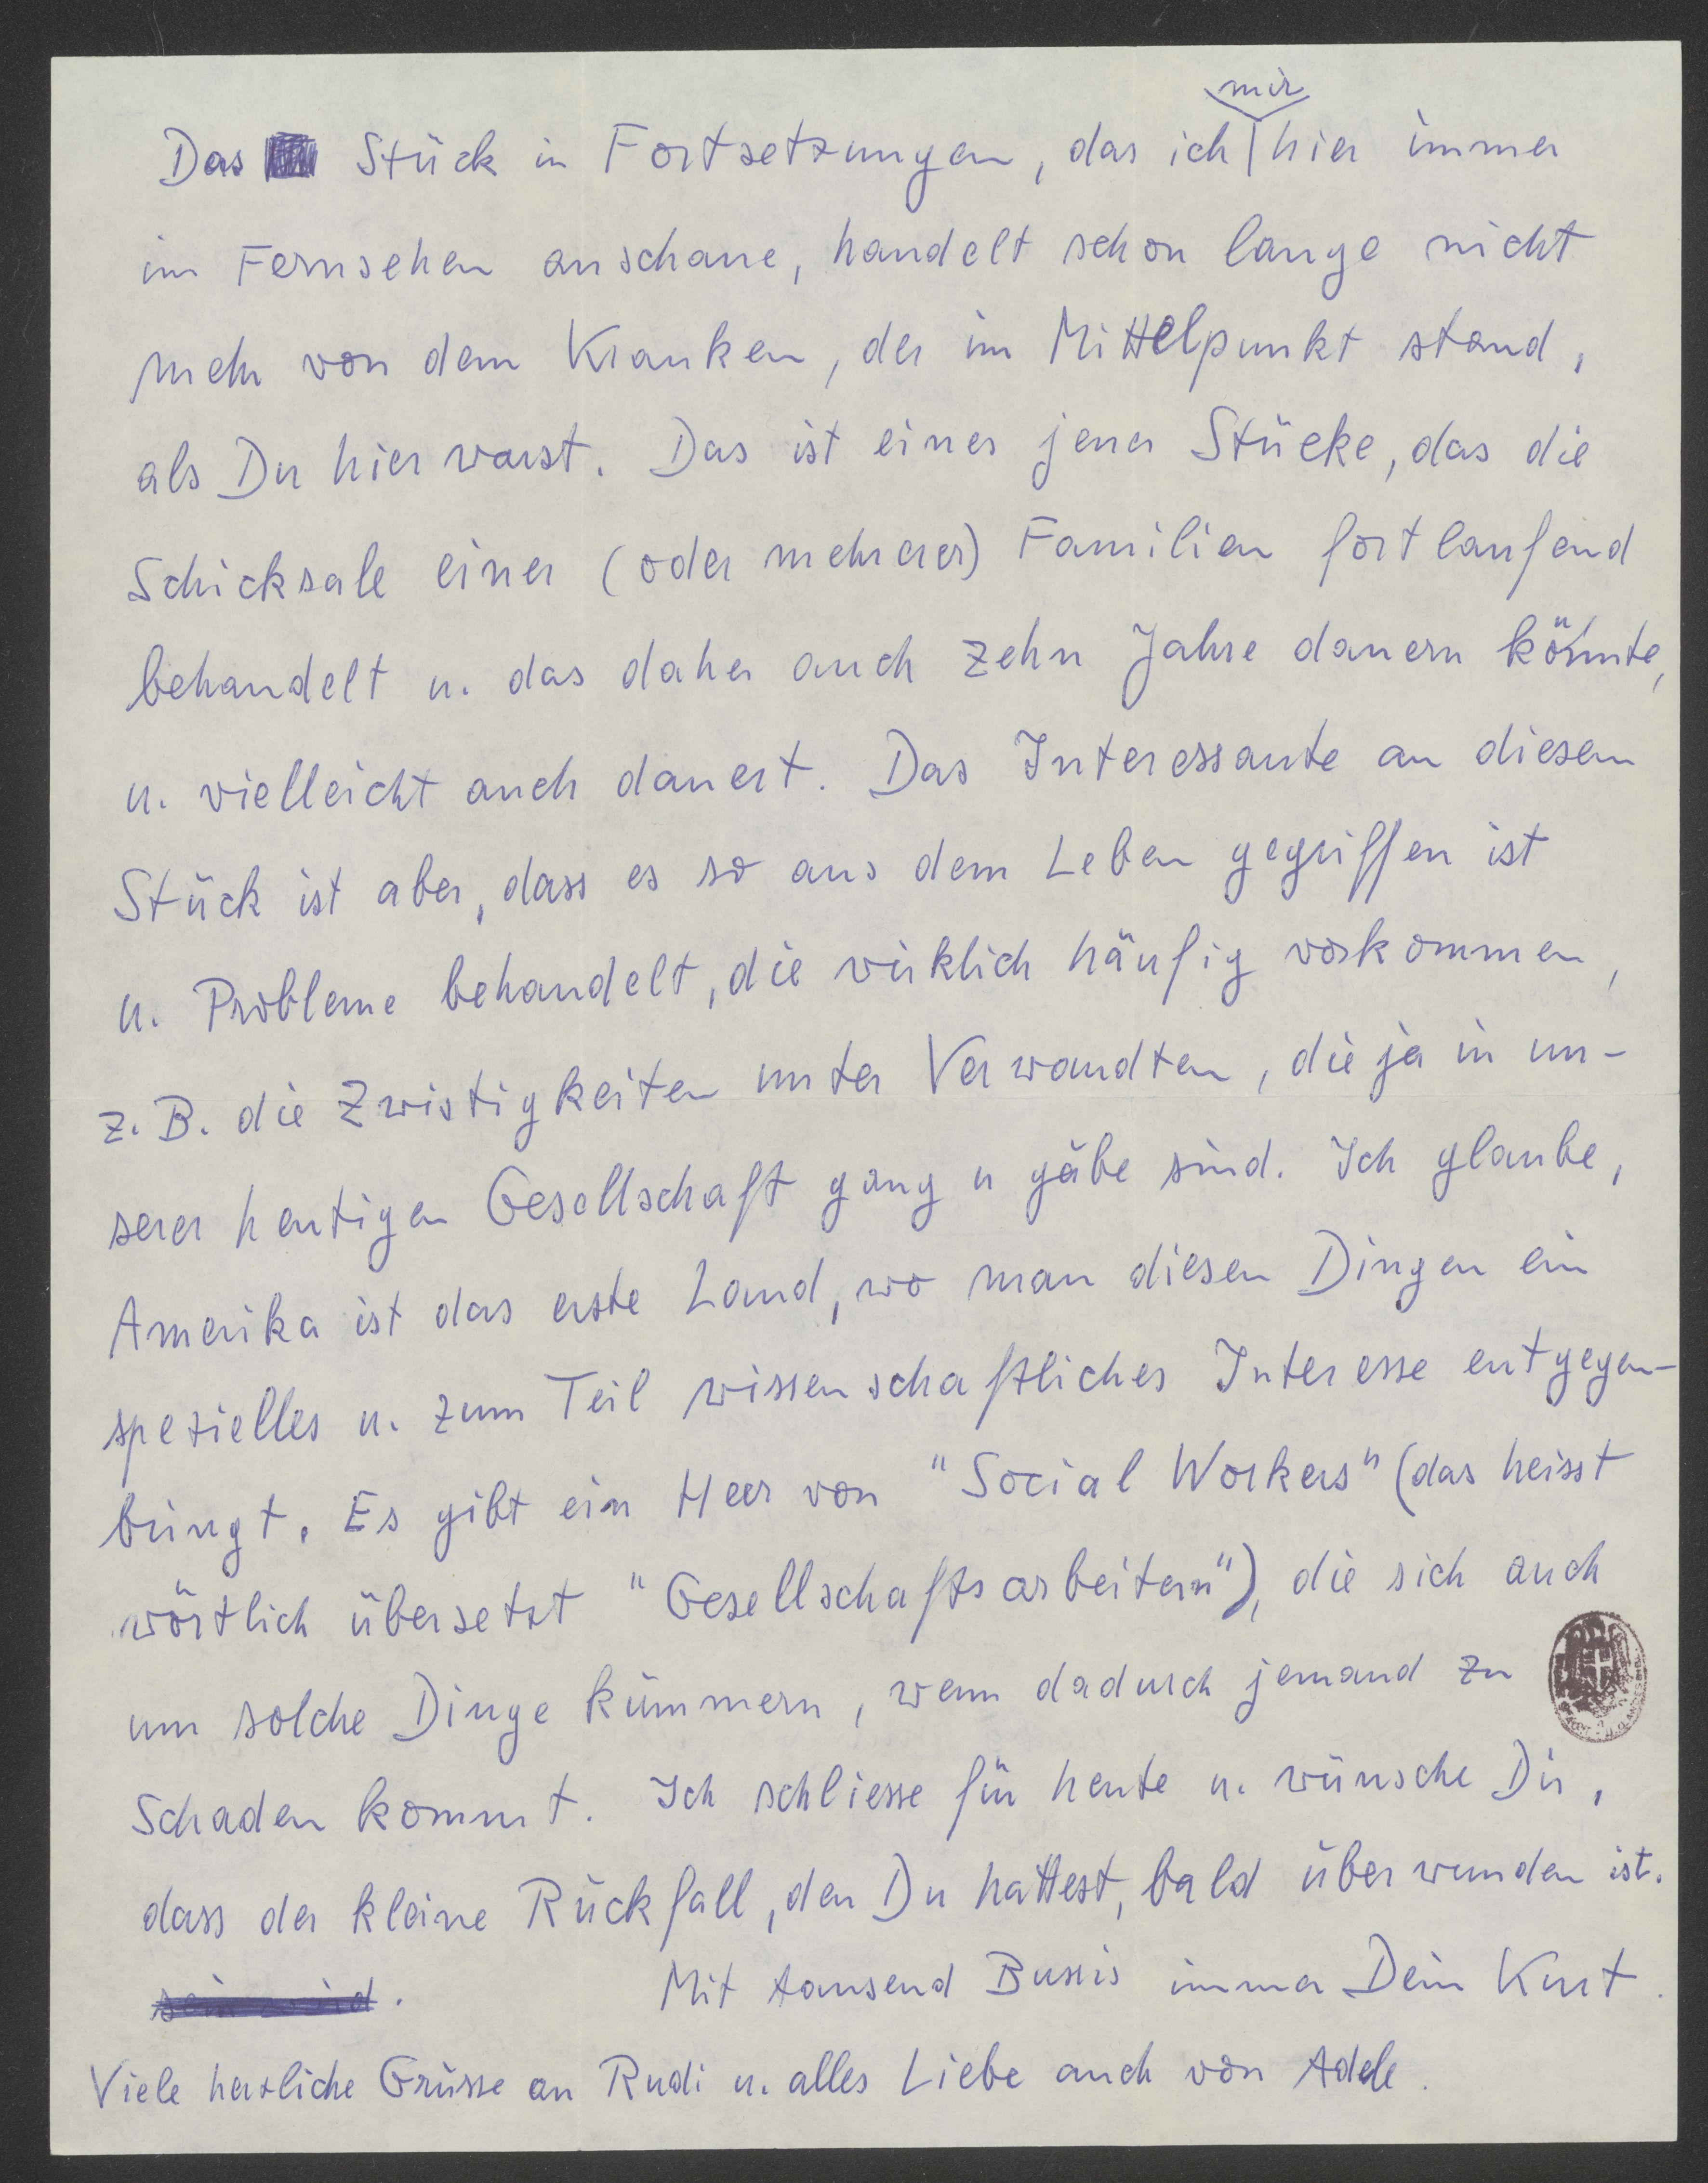 Das Stück in Fortsetzungen, das ich mir hier immer
im Fernsehen anschaue, handelt schon lange nicht
mehr von dem Kranken, der im Mittelpunkt stand,
als Du hier warst. Das ist eines jener Stücke, das die
Schicksale einer (oder mehrerer) Familien fortlaufend
behandelt u. das daher auch zehn Jahre dauern könnte,
u. vielleicht auch dauert. Das Interessante an diesem
Stück ist aber, dass es so aus dem Leben gegriffen ist
u. Probleme behandelt, die wirklich häufig vorkommen,
z. B. die Zwistigkeiten unter Verwandten, die ja in un-
serer heutigen Gesellschaft gang u gäbe sind. Ich glaube,
Amerika ist das erste Land, wo man diesen Dingen ein
spezielles u. zum Teil wissenschaftliches Interesse entgegen-
bringt. Es gibt ein Heer von "Social Workers" (das heisst
wörtlich übersetzt "Gesellschaftsarbeitern"), die sich auch
um solche Dinge kümmern, wenn dadurch jemand zu
Schaden kommt. Ich schliesse für heute u. wünsche Dir,
dass der kleine Rückfall, den Du hattest, bald überwunden ist.
Mit tausend Bussis immer Dein Kurt.
Viele herzliche Grüsse an Rudi u. alles Liebe auch von Adele.